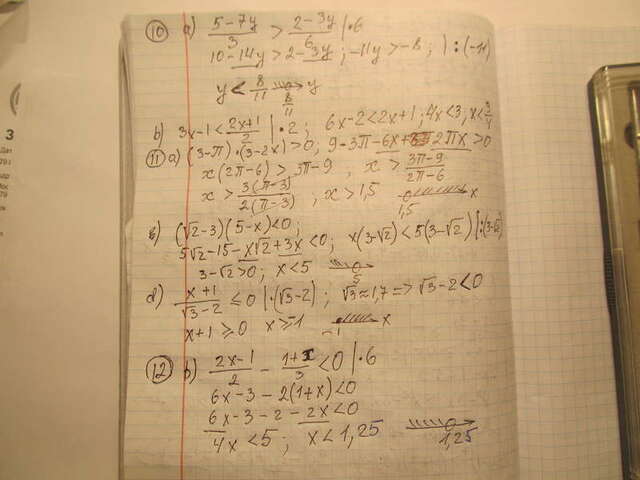 10 a) (5-7y)/3 > (2-3y)/6 | ·6
10-14y > 2-3y ; -11y > -8 ; ) : (-11)
y < 8/11 8/11 y
b) 3x-1 < (2x+1)/2 | ·2 ; 6x-2 < 2x+1 ; 4x < 3 ; x < 3/4
11 a) (3-π)·(3-2x) > 0 ; 9-3π-6x+2πx > 0
x(2π-6) > 3π-9 , x > (3π-9)/(2π-6)
x > 3(π-3)/2(π-3) ; x > 1,5 1,5 x
в) (√2-3)(5-x) < 0 ;
5√2-15-x√2+3x < 0 ; x(3-√2) < 5(3-√2) | :(3-√2)
3-√2 > 0 ; x < 5 5
d) (x+1)/(√3-2) ≤ 0 | ·(√3-2) ; √3 ≈ 1,7 => √3-2 < 0
x+1 ≥ 0 x ≥ -1 -1 x
12 b) (2x-1)/2 - (1+x)/3 < 0 | ·6
6x-3-2(1+x) < 0
6x-3-2-2x < 0
4x < 5 ; x < 1,25 1,25
3